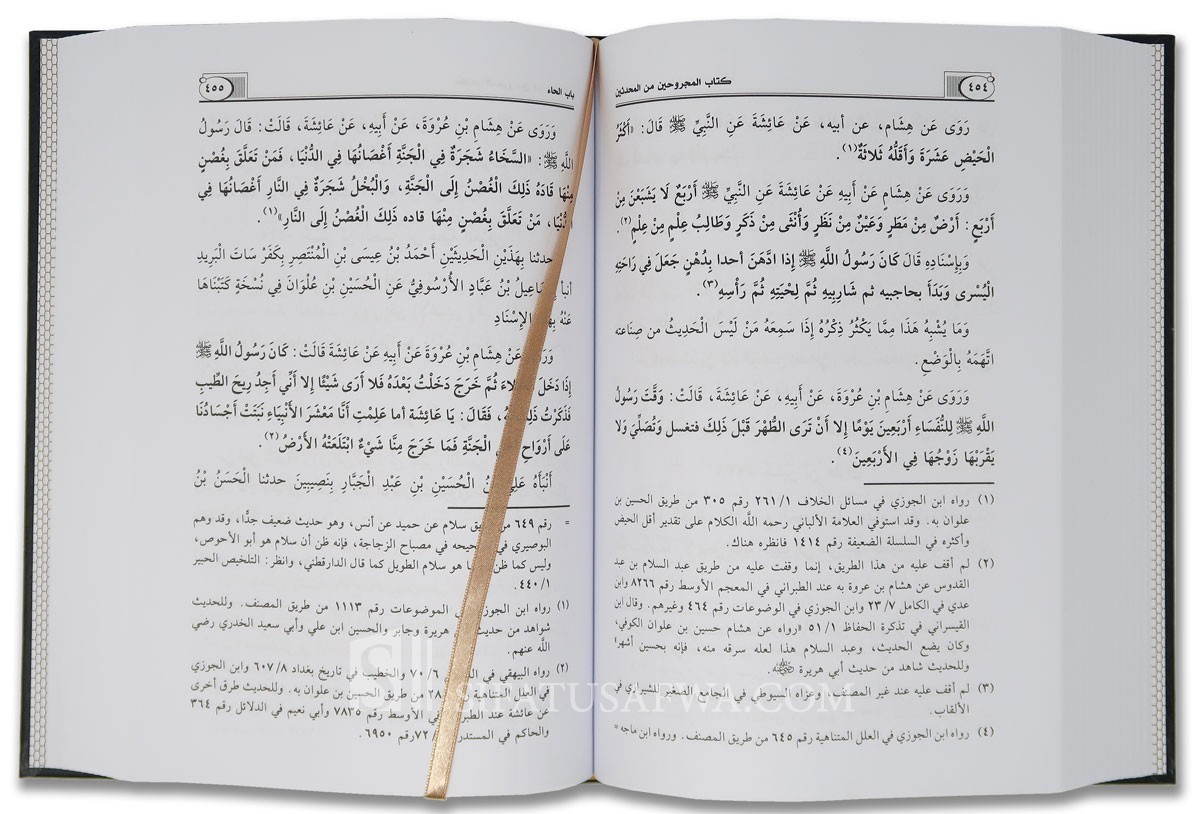 كتاب المجروحين من المحدثين
٤٥٤
رَوَى عَن هِشَام، عن أبيه، عَنْ عَائِشَةَ عَنِ النَّبِيِّ ﷺ قَالَ: «أَكْثَرُ
الْحَيْضِ عَشَرَة وَأَقَلُّهُ ثَلَاثَةٌ(١).
وَرَوَى عَن هِشَامٍ عَنْ أَبِيهِ عَنْ عَائِشَةَ عَنِ النَّبِيِّ ﷺ أَرْبَعٌ لَا يَشْبَعْنَ مِنْ
أَرْبَعٍ: أَرْضٌ مِنْ مَطَرٍ وَعَيْنٌ مِنْ نَظَرٍ وَأُنْثَى مِنْ ذَكَرٍ وَطَالِبُ عِلْمٍ مِنْ عِلْمٍ(٢).
وَبِإِسْنَادِه قَالَ كَانَ رَسُولُ اللَّهِ ﷺ إِذا ادَّهَنَ أحدا بِدُهْنٍ جَعَلَ فِي رَاحَتِهِ
الْيُسْرى وَبَدَأَ بحاجبيه ثم شاربيه ثُمَّ لِحْيَتِهِ ثُمَّ رَأْسِهِ(٣).
وَمَا يُشْبِهُ هَذَا مِمَّا يَكْثُرُ ذِكْرُهُ إِذَا سَمِعَهُ مَنْ لَيْسَ الْحَدِيثُ من صِنَاعته
اتَّهَمَهُ بِالْوَضْعِ.
وَرَوَى عَنْ هِشَامِ بْنِ عُرْوَةَ، عَنْ أَبِيهِ، عَنْ عَائِشَةَ، قَالَتْ: وَقَّتَ رَسُولُ
اللَّهِ ﷺ لِلنُّفَسَاءِ أَرْبَعِينَ يَوْمًا إلا أَنْ تَرَى الطُّهْرَ قَبْلَ ذَلِكَ فتغسل وَتُصَلِّيَ وَلا
يَقْرَبْهَا زَوْجُهَا فِي الأَرْبَعِينَ(٤).
(١) رواه ابن الجوزي في مسائل الخلاف ٢٦١/١ رقم ٣٠٥ من طريق الحسين بن
علوان به. وقد استوفي العلامة الألباني رحمه اللَّه الكلام على تقدير أقل الحيض
وأكثره في السلسلة الضعيفة رقم ١٤١٤ فانظره هناك.
(٢) لم أقف عليه من هذا الطريق، إنما وقفت عليه من طريق عبد السلام بن عبد
القدوس عن هشام بن عروة به عند الطبراني في المعجم الأوسط رقم ٨٢٦٦ وابن
عدي في الكامل ٢٣/٧ وابن الجوزي في الوضوعات رقم ٤٦٤ وغيرهم. وقال ابن
القيسراني في تذكرة الحفاظ ٥١/١ «رواه عن هشام حسين بن علوان الكوفي،
وكان يضع الحديث، وعبد السلام هذا لعله سرقه منه، فإنه بحسين أشهر»
وللحديث شاهد من حديث أبي هريرة ﵁.
(٣) لم أقف عليه عند غير المصنف، وعزاه السيوطي في الجامع الصغير للشيرازي في
الألقاب.
(٤) رواه ابن الجوزي في العلل المتناهية رقم ٦٤٥ من طريق المصنف. ورواه ابن ماجه =
باب الحاء
٤٥٥
وَرَوَى عَنْ هِشَامِ بْنِ عُرْوَةَ، عَنْ أَبِيهِ، عَنْ عَائِشَةَ، قَالَتْ: قَالَ رَسُولُ
اللَّهِ ﷺ: «السَّخَاءُ شَجَرَةٌ فِي الْجَنَّةِ أَغْصَانُهَا فِي الدُّنْيَا، فَمَنْ تَعَلَّقَ بِغُصْنٍ
مِنْهَا قَادَهُ ذَلِكَ الْغُصْنُ إِلَى الْجَنَّةِ، وَالْبُخْلُ شَجَرَةٌ فِي النَّارِ أَغْصَانُهَا فِي
الدُّنْيَا، مَنْ تَعَلَّقَ بِغُصْنٍ مِنْهَا قاده ذَلِكَ الْغُصْنُ إِلَى النَّارِ»(١).
حدثنا بِهَذَيْنِ الْحَدِيثَيْنِ أَحْمَدُ بْنُ عِيسَى بْنِ الْمُنْتَصِرِ بِكَفْرَ سَاتَ الْبَرِيدِ
أنبأ إسماعيلُ بْنُ عَبَّادٍ الأُرْسُوفِيُّ عَنِ الْحُسَيْنِ بْنِ عُلْوَانَ فِي نُسْخَةٍ كَتَبْنَاهَا
عَنْهُ بِهَذَا الإِسْنَادِ
وَرَوَى عَنْ هِشَامِ بْنِ عُرْوَةَ عَنْ أَبِيهِ عَنْ عَائِشَةَ قَالَتْ: كَانَ رَسُولُ اللَّهِ ﷺ
إِذَا دَخَلَ الْخَلاءَ ثُمَّ خَرَجَ دَخَلْتُ بَعْدَهُ فَلا أَرَى شَيْئًا إِلا أَنِّي أَجِدُ رِيحَ الطِّيبِ
فَذَكَرْتُ ذَلِكَ لَهُ، فَقَالَ: يَا عَائِشَة أما عَلِمْتِ أَنَّا مَعْشَرَ الأَنْبِيَاءِ نَبَتَتْ أَجْسَادُنَا
عَلَى أَرْوَاحِ الْجَنَّةِ فَمَا خَرَجَ مِنَّا شَيْءٌ ابْتَلَعَتْهُ الأَرْضُ(٢).
أَنْبَأَهُ عَلِيُّ بْنُ الْحُسَيْنِ بْنِ عَبْدِ الْجَبَّارِ بِنَصِيبِينَ حدثنا الْحَسَنُ بْنُ
= رقم ٦٤٩ من طريق سلام عن حميد عن أنس، وهو حديث ضعيف جدًّا، وقد وهم
البوصيري في تصحيحه في مصباح الزجاجة، فإنه ظن أن سلام هو أبو الأحوص،
وليس كما ظن، إنما هو سلام الطويل كما قال الدارقطني، وانظر: التلخيص الحبير
٤٤٠/١.
(١) رواه ابن الجوزي في الموضوعات رقم ١١١٣ من طريق المصنف. وللحديث
شواهد من حديث أبي هريرة وجابر والحسين ابن علي وأبي سعيد الخدري رضي
اللَّه عنهم.
(٢) رواه البيهقي في ٧١/٦ والخطيب في تاريخ بغداد ٦٠٧/٨ وابن الجوزي
في العلل المتناهية من طريق الحسين بن علوان به. وللحديث طرق أخرى
عن عائشة عند الطبراني في الأوسط رقم ٧٨٣٥ وأبي نعيم في الدلائل رقم ٣٦٤
والحاكم في المستدرك ٧٢/ رقم ٦٩٥٠.
SIFATUSAFWA.COM